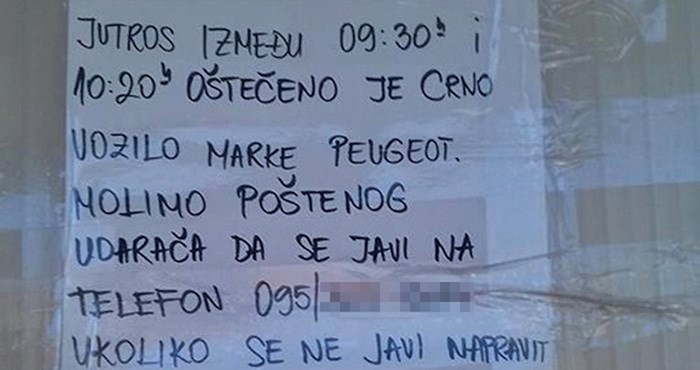 JUTROS IZMEĐU 09:30h i
10:20h OŠTEČENO JE CRNO
VOZILO MARKE PEUGEOT.
MOLIMO POŠTENOG
UDARAČA DA SE JAVI NA
TELEFON 095/
UKOLIKO SE NE JAVI NAPRAVIT